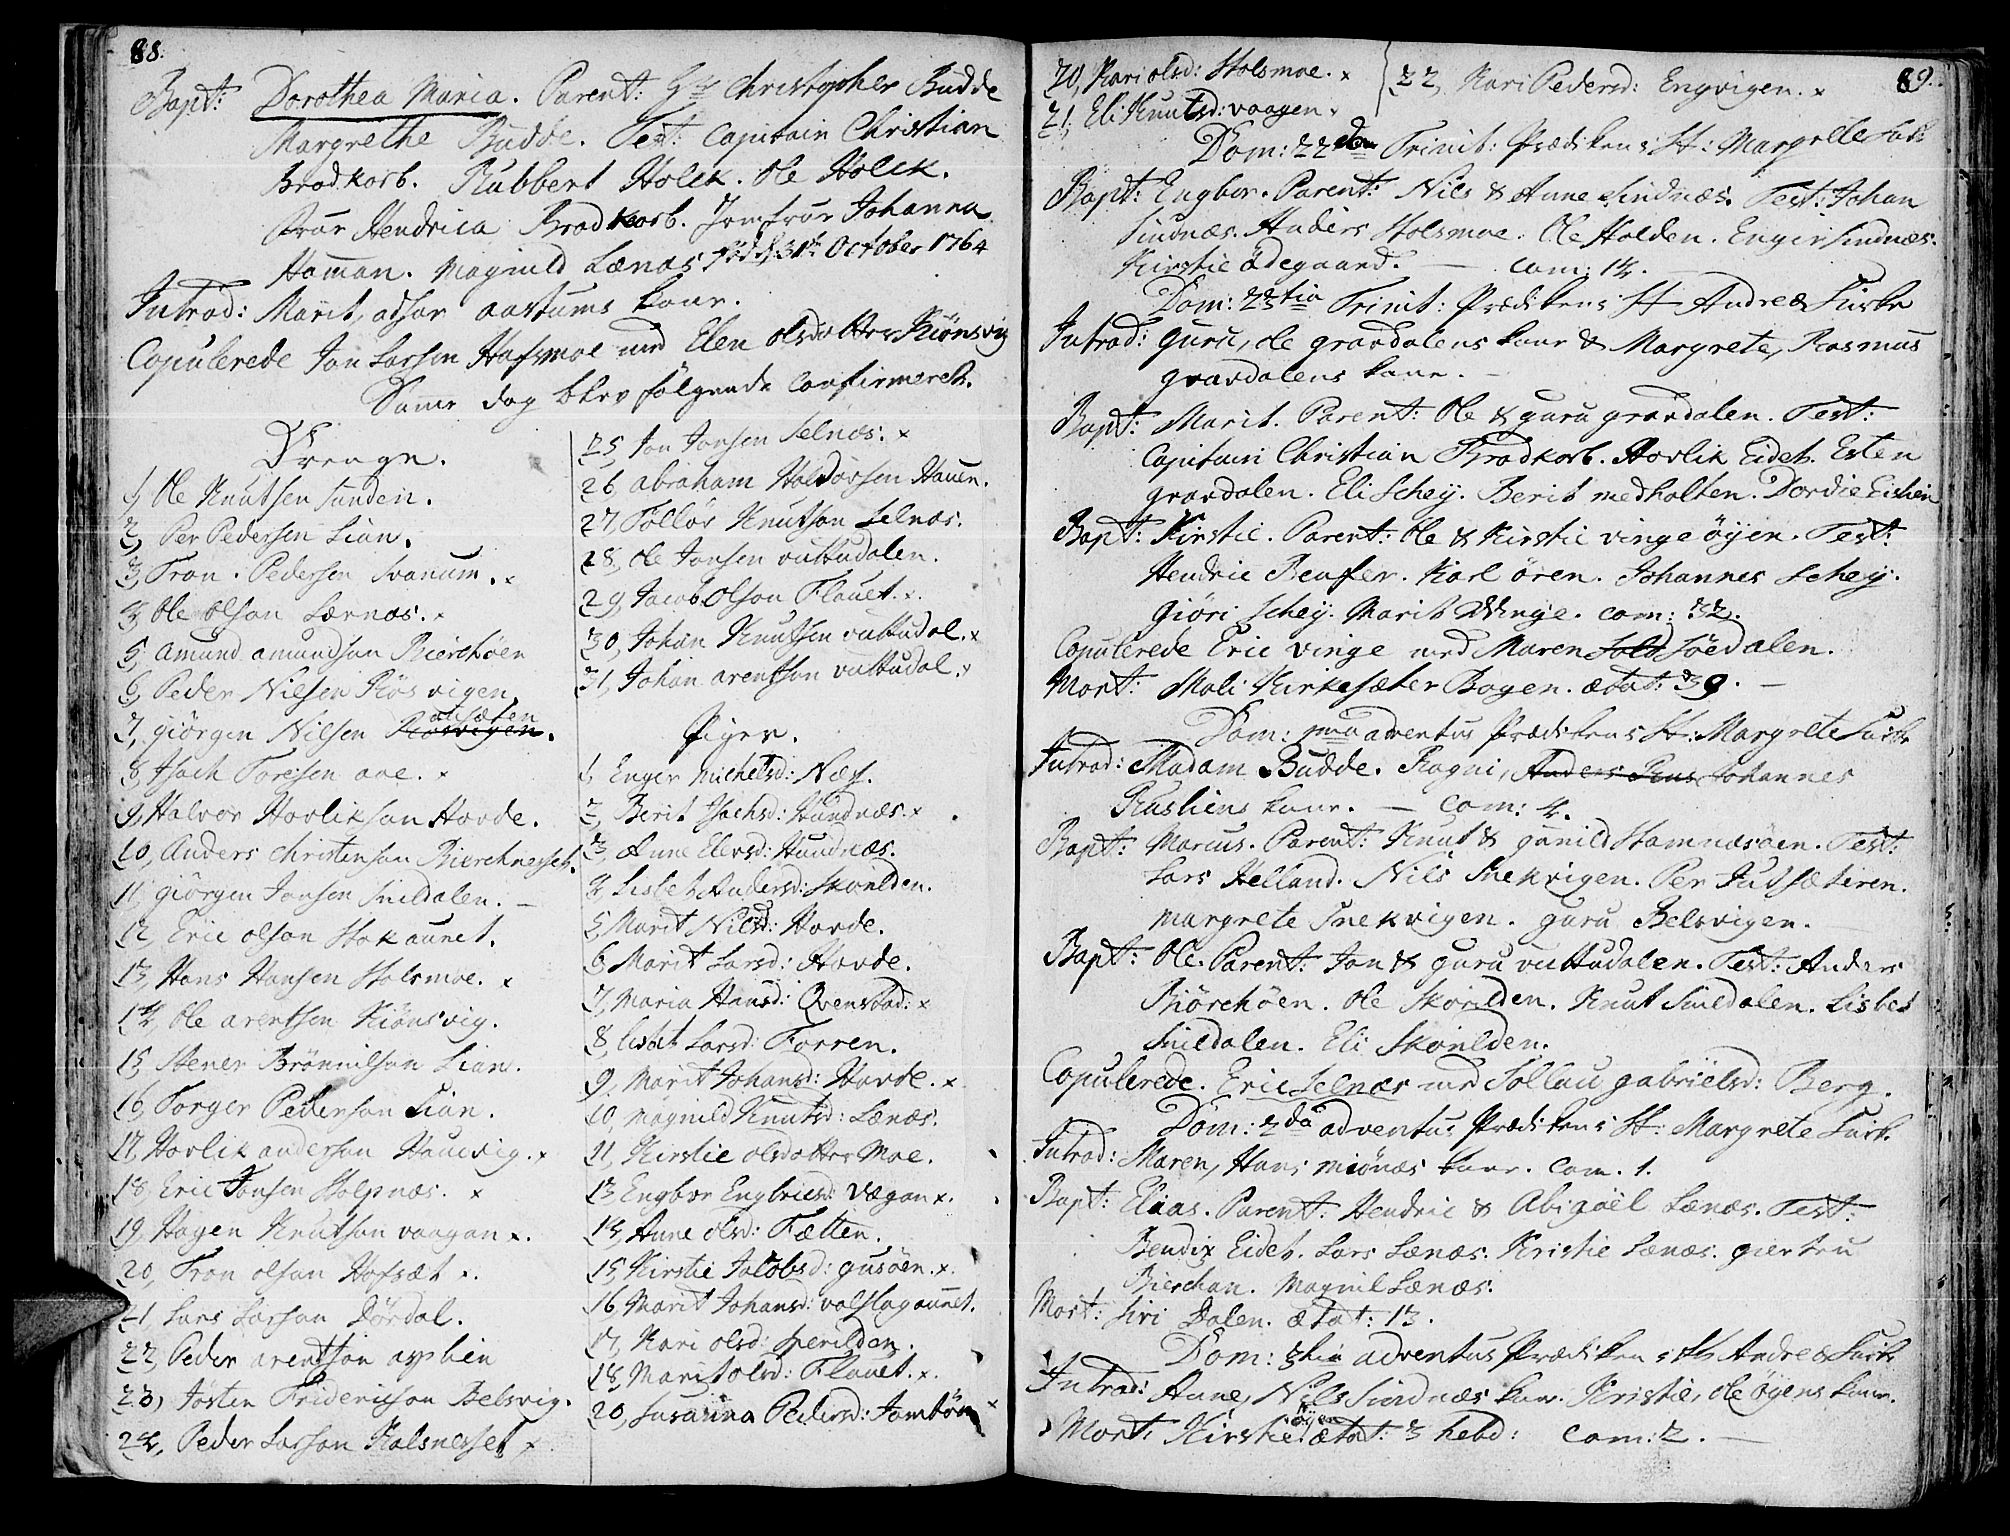 88.
Bapt: Dorothea Maria. Parent: Hr Christopher Budde
Margrethe Budde. Test: Capitain Christian
Brodkorb. Rubbert Holck. Ole Holck.
Frue Hendrica Brodkorb. Jomfrue Johanna
Haman. Magnild Lænæs. fød d. 31te October 1764
Introd: Marit, aastums kone.
Copulerede Jon Larsen Hafsmoe med Elen olsdotter Kiønsvig
Samme dag blev følgende Confirmerede.
Drenge.
1, Ole Knutsen Sunden.
2, Per Pedersen Lian.
3, Tron Pedersen Svanum. x
4, Ole Olsen Lernæs. x
5, Amund Amundsen Bierchøen
6, Peder Nilsen Røsvigen.
7, Giörgen Nilsen Rosvigen. alsæten
8, Isach Toresen aae. x
9, Halvor Hovliksen Hovde.
10, Anders Christensen Bierchneset.
11, Giörgen Jonsen Snildalen. —
12, Eric olsen Stokaunet.
13, Hans Hansen Holsmoe. x
14, Ole arentsen Kiönsvig.
15, Stener Brönnilsen Lian.
16, Torger Pedersen Lian.
17, Hovlik andersen Haucvig. x
18, Eric Jonsen Stolpnæs. x
19, Hagen Knutsen vaagan x.
20, Tron olsen Hofsæt x.
21, Lars Larsen Dördal.
22, Peder arentsen asplien
23, Jösten Fridericsen Belsvig.
24, Peder Larsen Kalsneset x
25, Jon Jonsen Selnæs. x
26, Abraham Haldorsen Hauen.
27, Tolløv Knutsen Selnæs.
28, Ole Jonsen vuttudalen.
29, Jacob Olsen Flauet. x.
30, Johan Knutsen vuttudal. x
31, Johan arentsen vuttudal. x
Piger.
1, Enger Michelsd: Næss.
2, Berit Isachsd: Hundnæs. x
3, Anne Elevsd: Hundnæs.
4, Lisbet Andersd: Skorilden.
5, Marit Nilsd: Hovde.
6, Marit Larsd: Hovde.
7, Maria Hansd: Qvenstad: x
8, Lisbet Larsd: Forren.
9, Marit Johansd: Hovde. x
10, Magnild Knutsd: Lænæs.
11, Kirstie olsdotter Moe.
13, Engbor Engbricsd: Vægan x.
14, Anne olsd: Fætten.
15, Kirstie Jacobsd: gusöen. x.
16, Marit Johansd: valslagaunet.
17, Kari olsd: Sperilden.
18, Marit olsd: Flauet. x.
20, Susanna Pedersd: Jamtöien x
89.
20, Kari olsd: Holsmoe. x
21, Eli Knutsd: vaagen x
22, Kari Pedersd: Engvigen. x
Dom: 22den Trinit: Prædiken i St: Margrete Kirke
Bapt: Engbor. Parent: Nils & Anne Sindnæs. Test: Johan
Sindnæs. Anders Holsmoe. Ole Holden. Enger Sindnæs.
Kirstie ödegaard. — com: 14.
Dom: 23tia Trinit: Prædiken i St Andreæ Kirke
Introd: guru, ole gravdalens kone & Margrete, Rasmus
gravdalens kone. —
Bapt: Marit. Parent: Ole & guru gravdalen. Test:
Capitain Christian Brodkorb. Hovlik Eidet. Esten
gravdalen. Eli Schey. Berit medholten. Dordie Eidem
Bapt: Kirstie. Parent: Ole & Kirstie vinge öyen. Test:
Hendric Reusler. Karl ören. Johannes Schey.
Giöri Schey. Marit Winge. com: 32.
Copulerede Eric vinge med Maren Sold Söedalen.
Mort: Mali Kirkesæter Bogen. ætat: 39. —
Dom: 1ma adventus Prædiken i St: Margrete Kirk
Introd: Madam Budde. Ragni, Anders Rus Johannes
Rusliens kone. — Com: 4.
Bapt: Marcus. Parent: Knut & gunild Hamnæsöen. Test:
Lars Helland. Nils Snekvigen. Per Jutsæteren.
Margrete Snekvigen. guru Belsvigen.
Bapt: Ole. Parent: Jon & guru vuttudalen. Test: Anders
Biörchöen. Ole Skorilden. Knut Snildalen. Lisbet
Snildalen. Eli Skorilden.
Copulerede. Eric Selnæs med Sollau gabriëlsd: Berg.
Dom: 2da adventus Prædiken i St: Margrete Kirk
Introd: Maren, Hans miönæs kone. Com. 1.
Bapt: Elias. Parent: Hendric & Abigaël Lænæs. Test:
Bendix Eidet. Lars Lænæs. Kristie Lænæs. giertru
Bierchan. Magnil Lænæs.
Mort: Siri Dalen. ætat: 13.
Dom: 3tia adventus Prædiken i St Andreæ Kirk
Introd: Anne, Nils Sindnæs kone. Kristie, Ole öyens kone.
Mort: Kirstie öyen ætat: 3 hebd: Com: 2. —